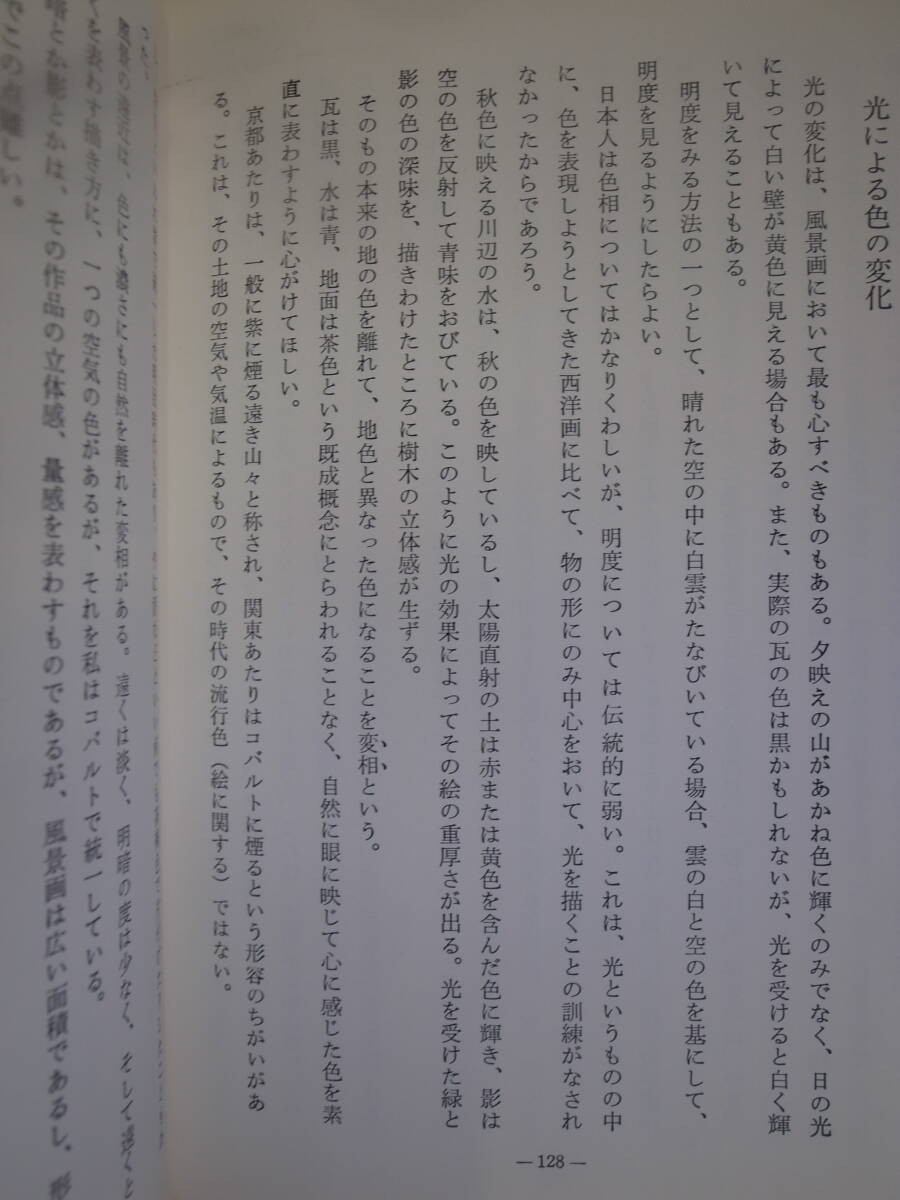 光による色の変化
光の変化は、風景画において最も心すべきものもある。夕映えの山があかね色に輝くのみでなく、日の光
によって白い壁が黄色に見える場合もある。また、実際の瓦の色は黒かもしれないが、光を受けると白く輝
いて見えることもある。
明度をみる方法の一つとして、晴れた空の中に白雲がたなびいている場合、雲の白と空の色を基にして、
明度を見るようにしたらよい。
日本人は色相についてはかなりくわしいが、明度については伝統的に弱い。これは、光というものの中
に、色を表現しようとしてきた西洋画に比べて、物の形にのみ中心をおいて、光を描くことの訓練がなされ
なかったからであろう。
秋色に映える川辺の水は、秋の色を映しているし、太陽直射の土は赤または黄色を含んだ色に輝き、影は
空の色を反射して青味をおびている。このように光の効果によってその絵の重厚さが出る。光を受けた緑と
影の色の深味を、描きわけたところに樹木の立体感が生ずる。
そのもの本来の地の色を離れて、地色と異なった色になることを変相という。
瓦は黒、水は青、地面は茶色という既成概念にとらわれることなく、自然に眼に映じて心に感じた色を素
直に表わすように心がけてほしい。
京都あたりは、一般に紫に煙る遠き山々と称され、関東あたりはコバルトに煙るという形容のちがいがあ
る。これは、その土地の空気や気温によるもので、その時代の流行色（絵に関する）ではない。
— 128 —
った。
風景の遠近は、色にも濃さにも自然を離れた変相がある。遠くは淡く、明暗の度は少なく、そして遠くと
くを表わす描き方に、一つの空気の色があるが、それを私はコバルトで統一している。
暗とか影とかは、その作品の立体感、量感を表わすものであるが、風景画は広い面積であるし、形
でこの点難しい。